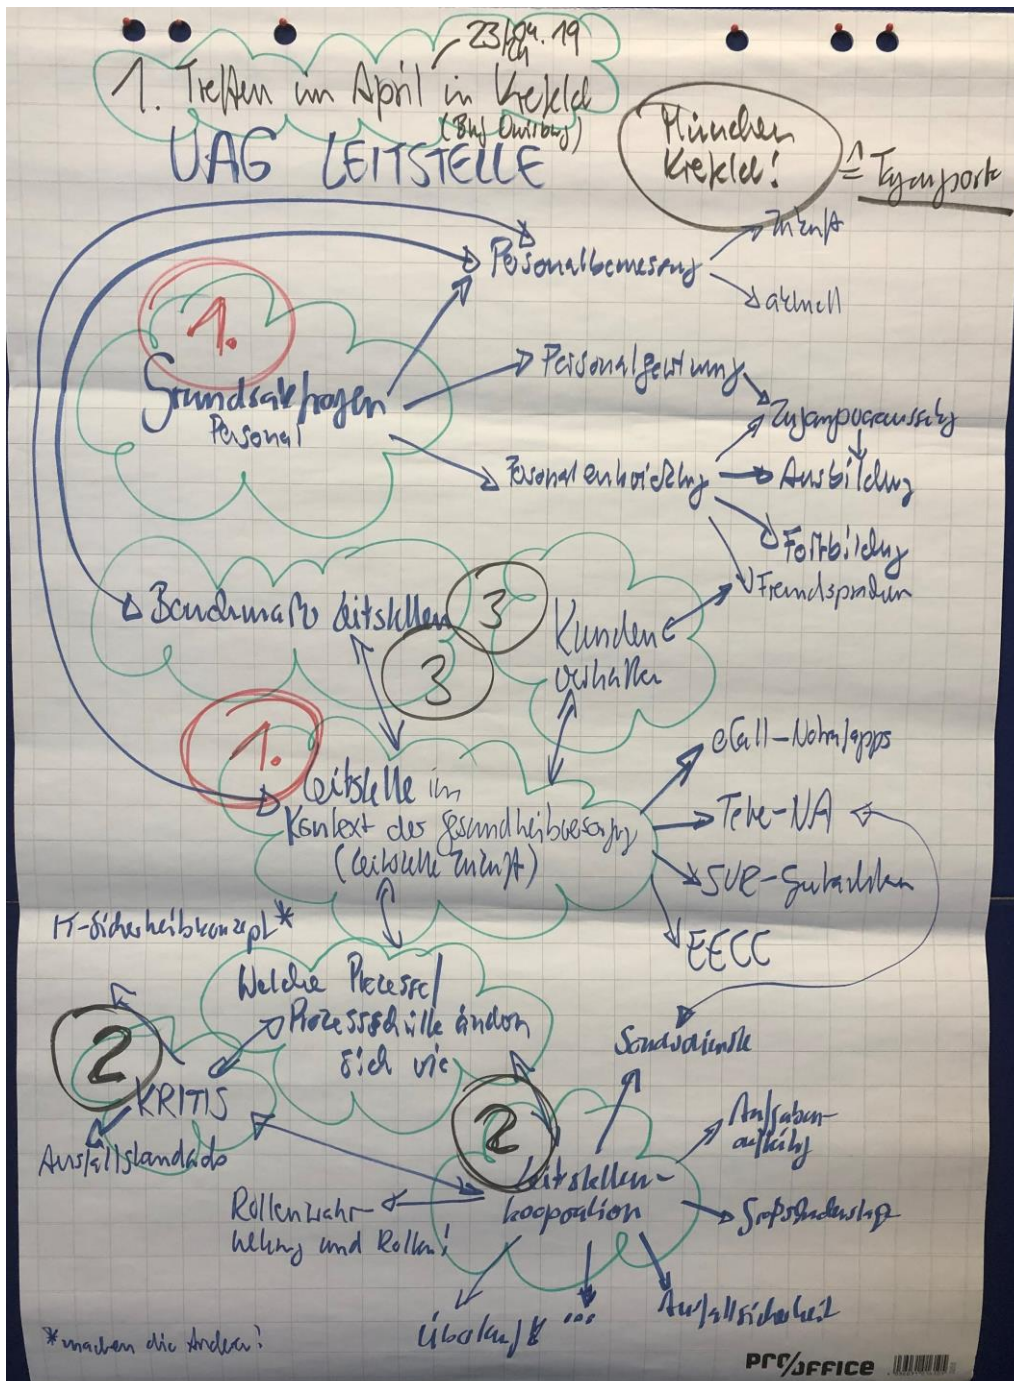 23/24.04.19
1. Treffen im April in Krefeld
(Bhf Duisburg)
UAG LEITSTELLE
München
Krefeld!
≙
Personalbemessung
Zukunft
aktuell
1.
Grundsatzfragen
Personal
Personalgewinnung
Zugangsvoraussetzg
Personalentwicklung
Ausbildung
Fortbildung
Fremdsprachen
Benchmark Leitstellen
3
3
Kunden
verhalten
1.
Leitstelle im
Kontext der Gesundheitsversorgung
(Leitstelle Zukunft)
eCall-Notrufapps
Tele-NA
SVR-Gutachten
EECC
IT-Sicherheitskonzept*
Welche Prozesse/
Prozessschritte ändern
sich wie
2
KRITIS
Ausfallstandards
2
Leitstellen-
kooperation
Sonderdienste
Aufgaben-
aufteilung
Großschadenslage
Rollenwahr-
nehmung und Rollen!
Überlauf
...
Ausfallsicherheit
*machen die Anderen!
PRO/OFFICE